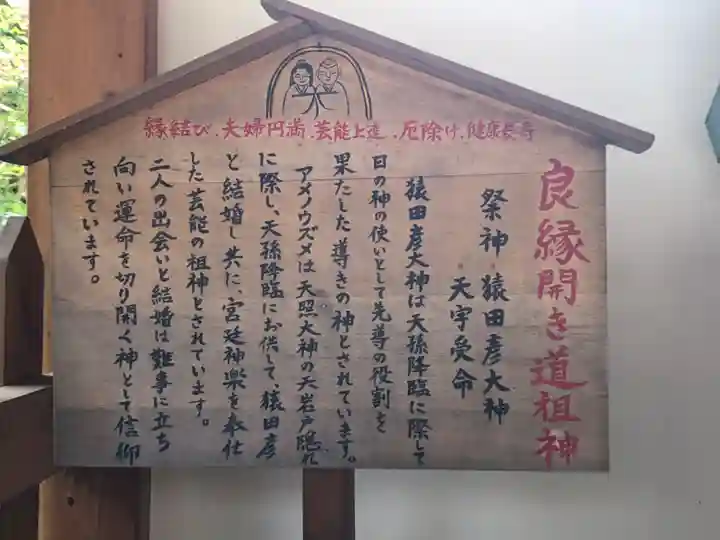 縁結び、夫婦円満、芸能上達、厄除け、健康長寿
良縁開き道祖神
祭神 猿田彦大神
天宇受命
猿田彦大神は天孫降臨に際して
日の神の使いとして先導の役割を
果たした導きの神とされています。
アメノウズメは天照大神の天岩戸隠れ
に際し、天孫降臨にお供して、猿田彦
と結婚し共に、宮廷神楽を奉仕
した芸能の祖神とされています。
二人の出会いと結婚は難事に立ち
向い運命を切り開く神として信仰
されています。